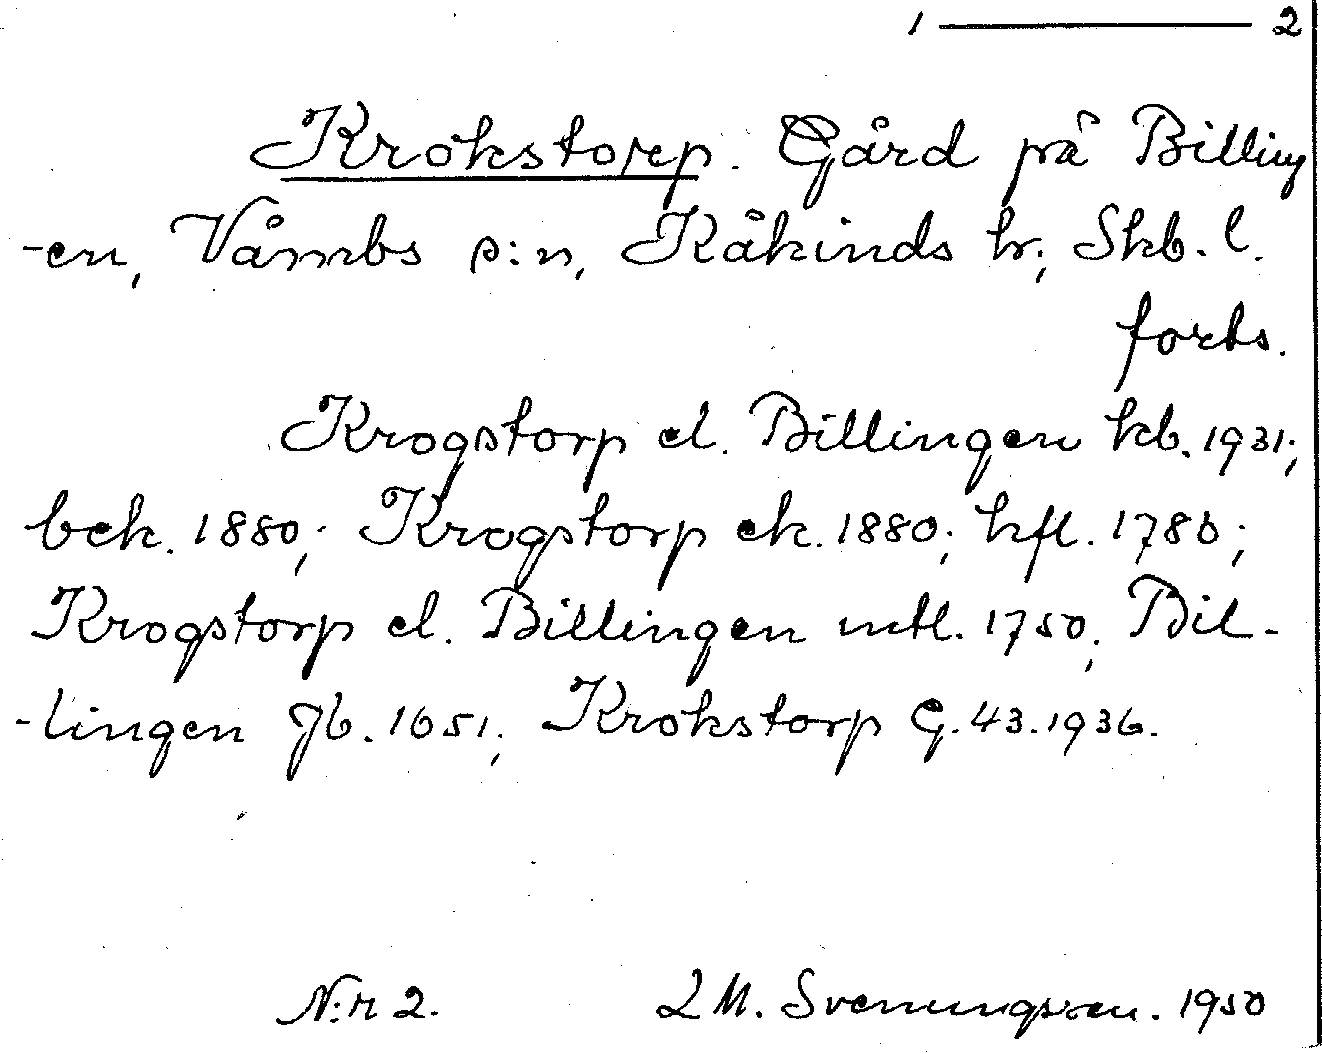 1 — 2
Krokstorp. Gård på Billing
-en, Våmbs s:n, Kåkinds hr; Skb. l.
forts.
Krogstorp el. Billingen kb. 1931;
bek. 1880; Krogstorp ek. 1880; hfl. 1786;
Krogstorp el. Billingen mtl. 1750; Bil-
-lingen Jb. 1651; Krokstorp G. 43. 1936.
N:r 2. L M. Svenungsson. 1950